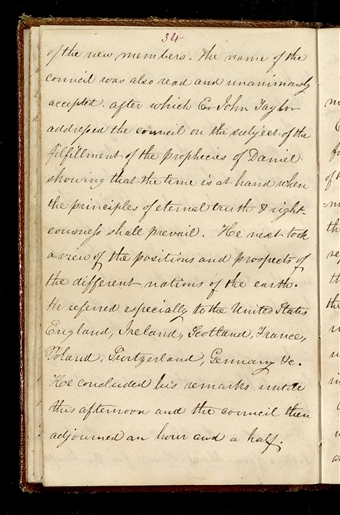 34
of the new members. The name of the
council was also read and unanimously
accepted. after which Er John Taylor
addressed the council on the subject of the
fulfillment of the prophecies of Daniel
showing that the time is at hand when
the principles of eternal truth & right-
eousness shall prevail. He next took
a view of the positions and prospects of
the different nations of the earth.
He referred especially to the United States
England, Ireland, Scotland, France,
Poland, Switzerland, Germany &c.
He concluded his remarks until
this afternoon and the council then
adjourned an hour and a half.